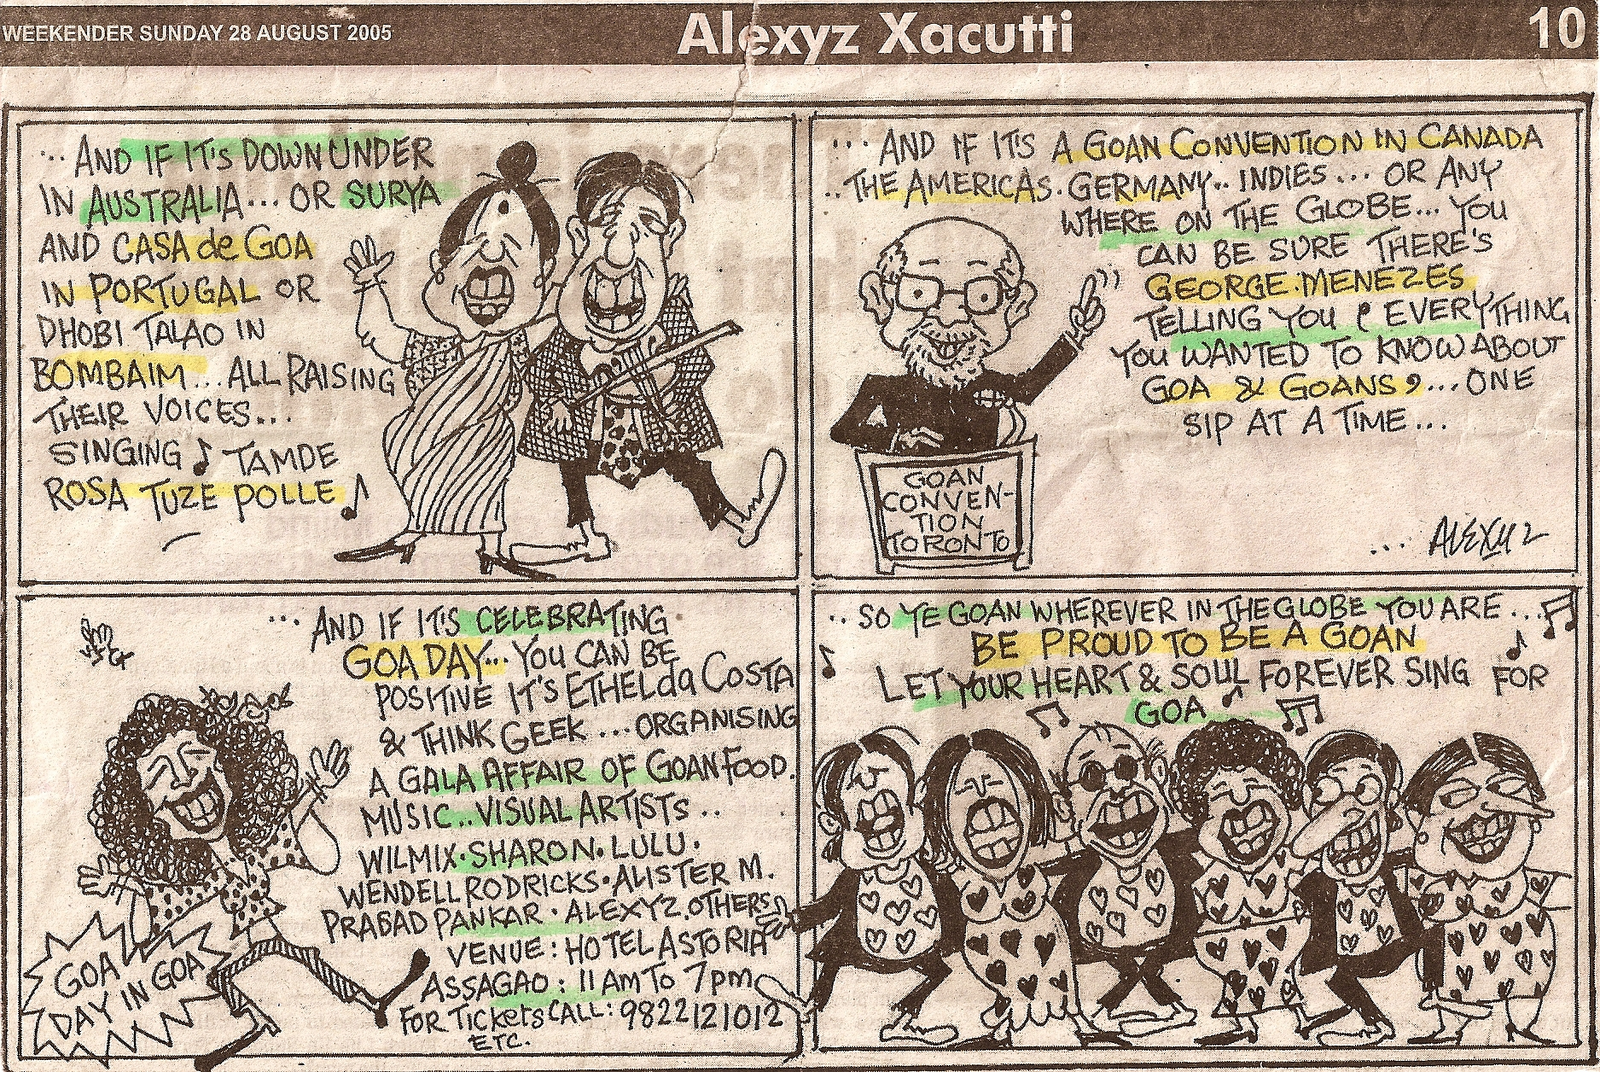 WEEKENDER SUNDAY 28 AUGUST 2005
Alexyz Xacutti
10
... AND IF IT'S DOWN UNDER
IN AUSTRALIA... OR SURYA
AND CASA de GOA
IN PORTUGAL OR
DHOBI TALAO IN
BOMBAIM... ALL RAISING
THEIR VOICES...
SINGING ♪ TAMDE
ROSA TUZE POLLE ♪
... AND IF IT'S A GOAN CONVENTION IN CANADA
..THE AMERICAS. GERMANY.. INDIES... OR ANY
WHERE ON THE GLOBE... YOU
CAN BE SURE THERE'S
GEORGE.MENEZES
TELLING YOU & EVERYTHING
YOU WANTED TO KNOW ABOUT
GOA & GOANS,... ONE
SIP AT A TIME...
GOAN
CONVEN-
TION
TORONTO
... ALEXYZ
... AND IF IT'S CELEBRATING
GOA DAY... YOU CAN BE
POSITIVE IT'S ETHEL da COSTA
& THINK GEEK... ORGANISING
A GALA AFFAIR OF GOAN FOOD.
MUSIC.. VISUAL ARTISTS ..
WILMIX. SHARON. LULU.
WENDELL RODRICKS. ALISTER M.
PRABAD PANKAR. ALEXYZ. OTHERS
VENUE: HOTEL ASTORIA
ASSAGAO: 11 AM TO 7 pm
FOR TICKETS CALL: 9822121012
ETC.
GOA
DAY IN GOA
.. SO YE GOAN WHEREVER IN THE GLOBE YOU ARE...
BE PROUD TO BE A GOAN
LET YOUR HEART & SOUL FOREVER SING FOR
GOA